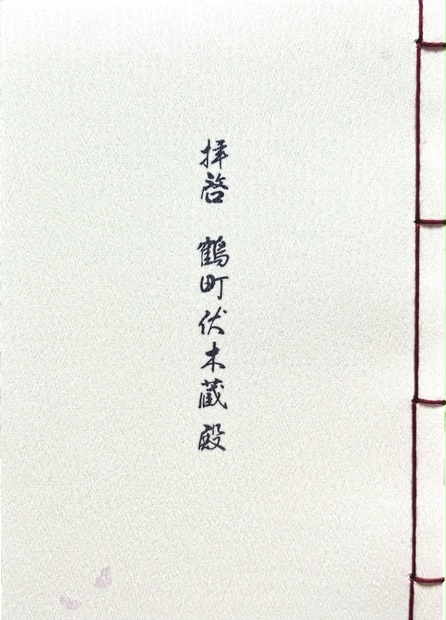 拝啓 鶴町伏木蔵殿